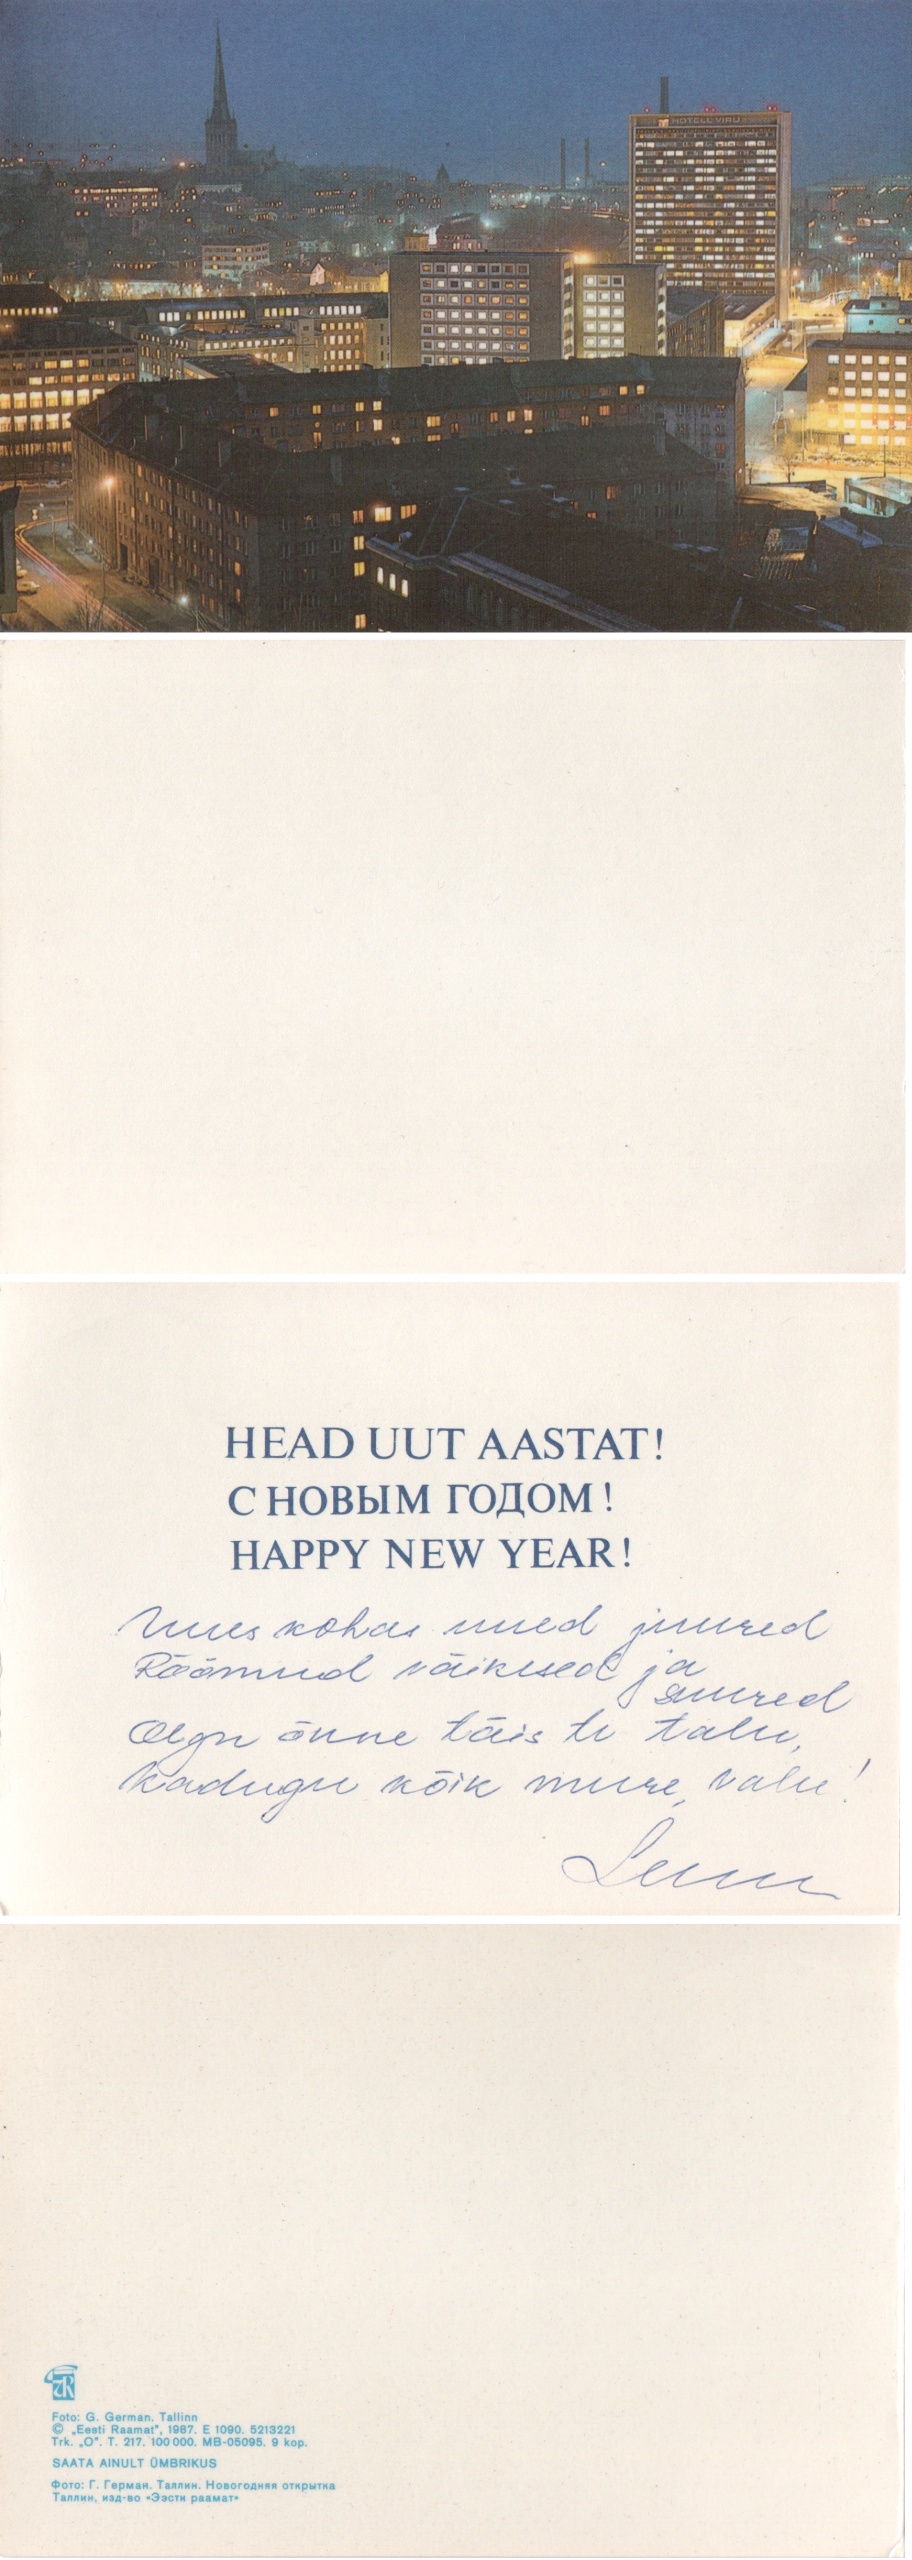 HOTELL VIRU
HEAD UUT AASTAT!
С НОВЫМ ГОДОМ!
HAPPY NEW YEAR!
Uues kohas uued juured
Rõõmud väikesed ja
suured
Olgu õnne täis te talu,
kadugu kõik mure, valu!
Foto: G. German. Tallinn
© „Eesti Raamat", 1987. E 1090. 5213221
Trk. „O". T. 217. 100 000. MB-05095. 9 kop.
SAATA AINULT ÜMBRIKUS
Фото: Г. Герман. Таллин. Новогодняя открытка
Таллин, изд-во «Ээсти раамат»